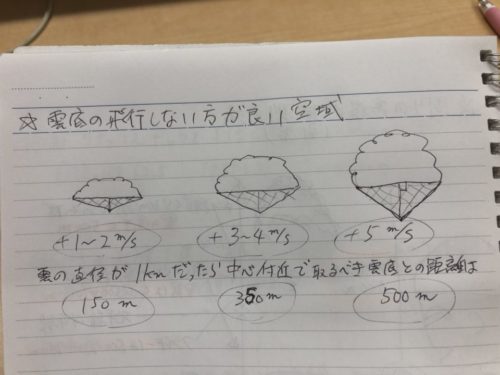 ☆ 雲底の飛行しない方が良い空域
+1~2 m/s +3~4 m/s +5 m/s
雲の直径が1kmだったら中心付近で取るべき雲底との距離は
150m 350m 500m